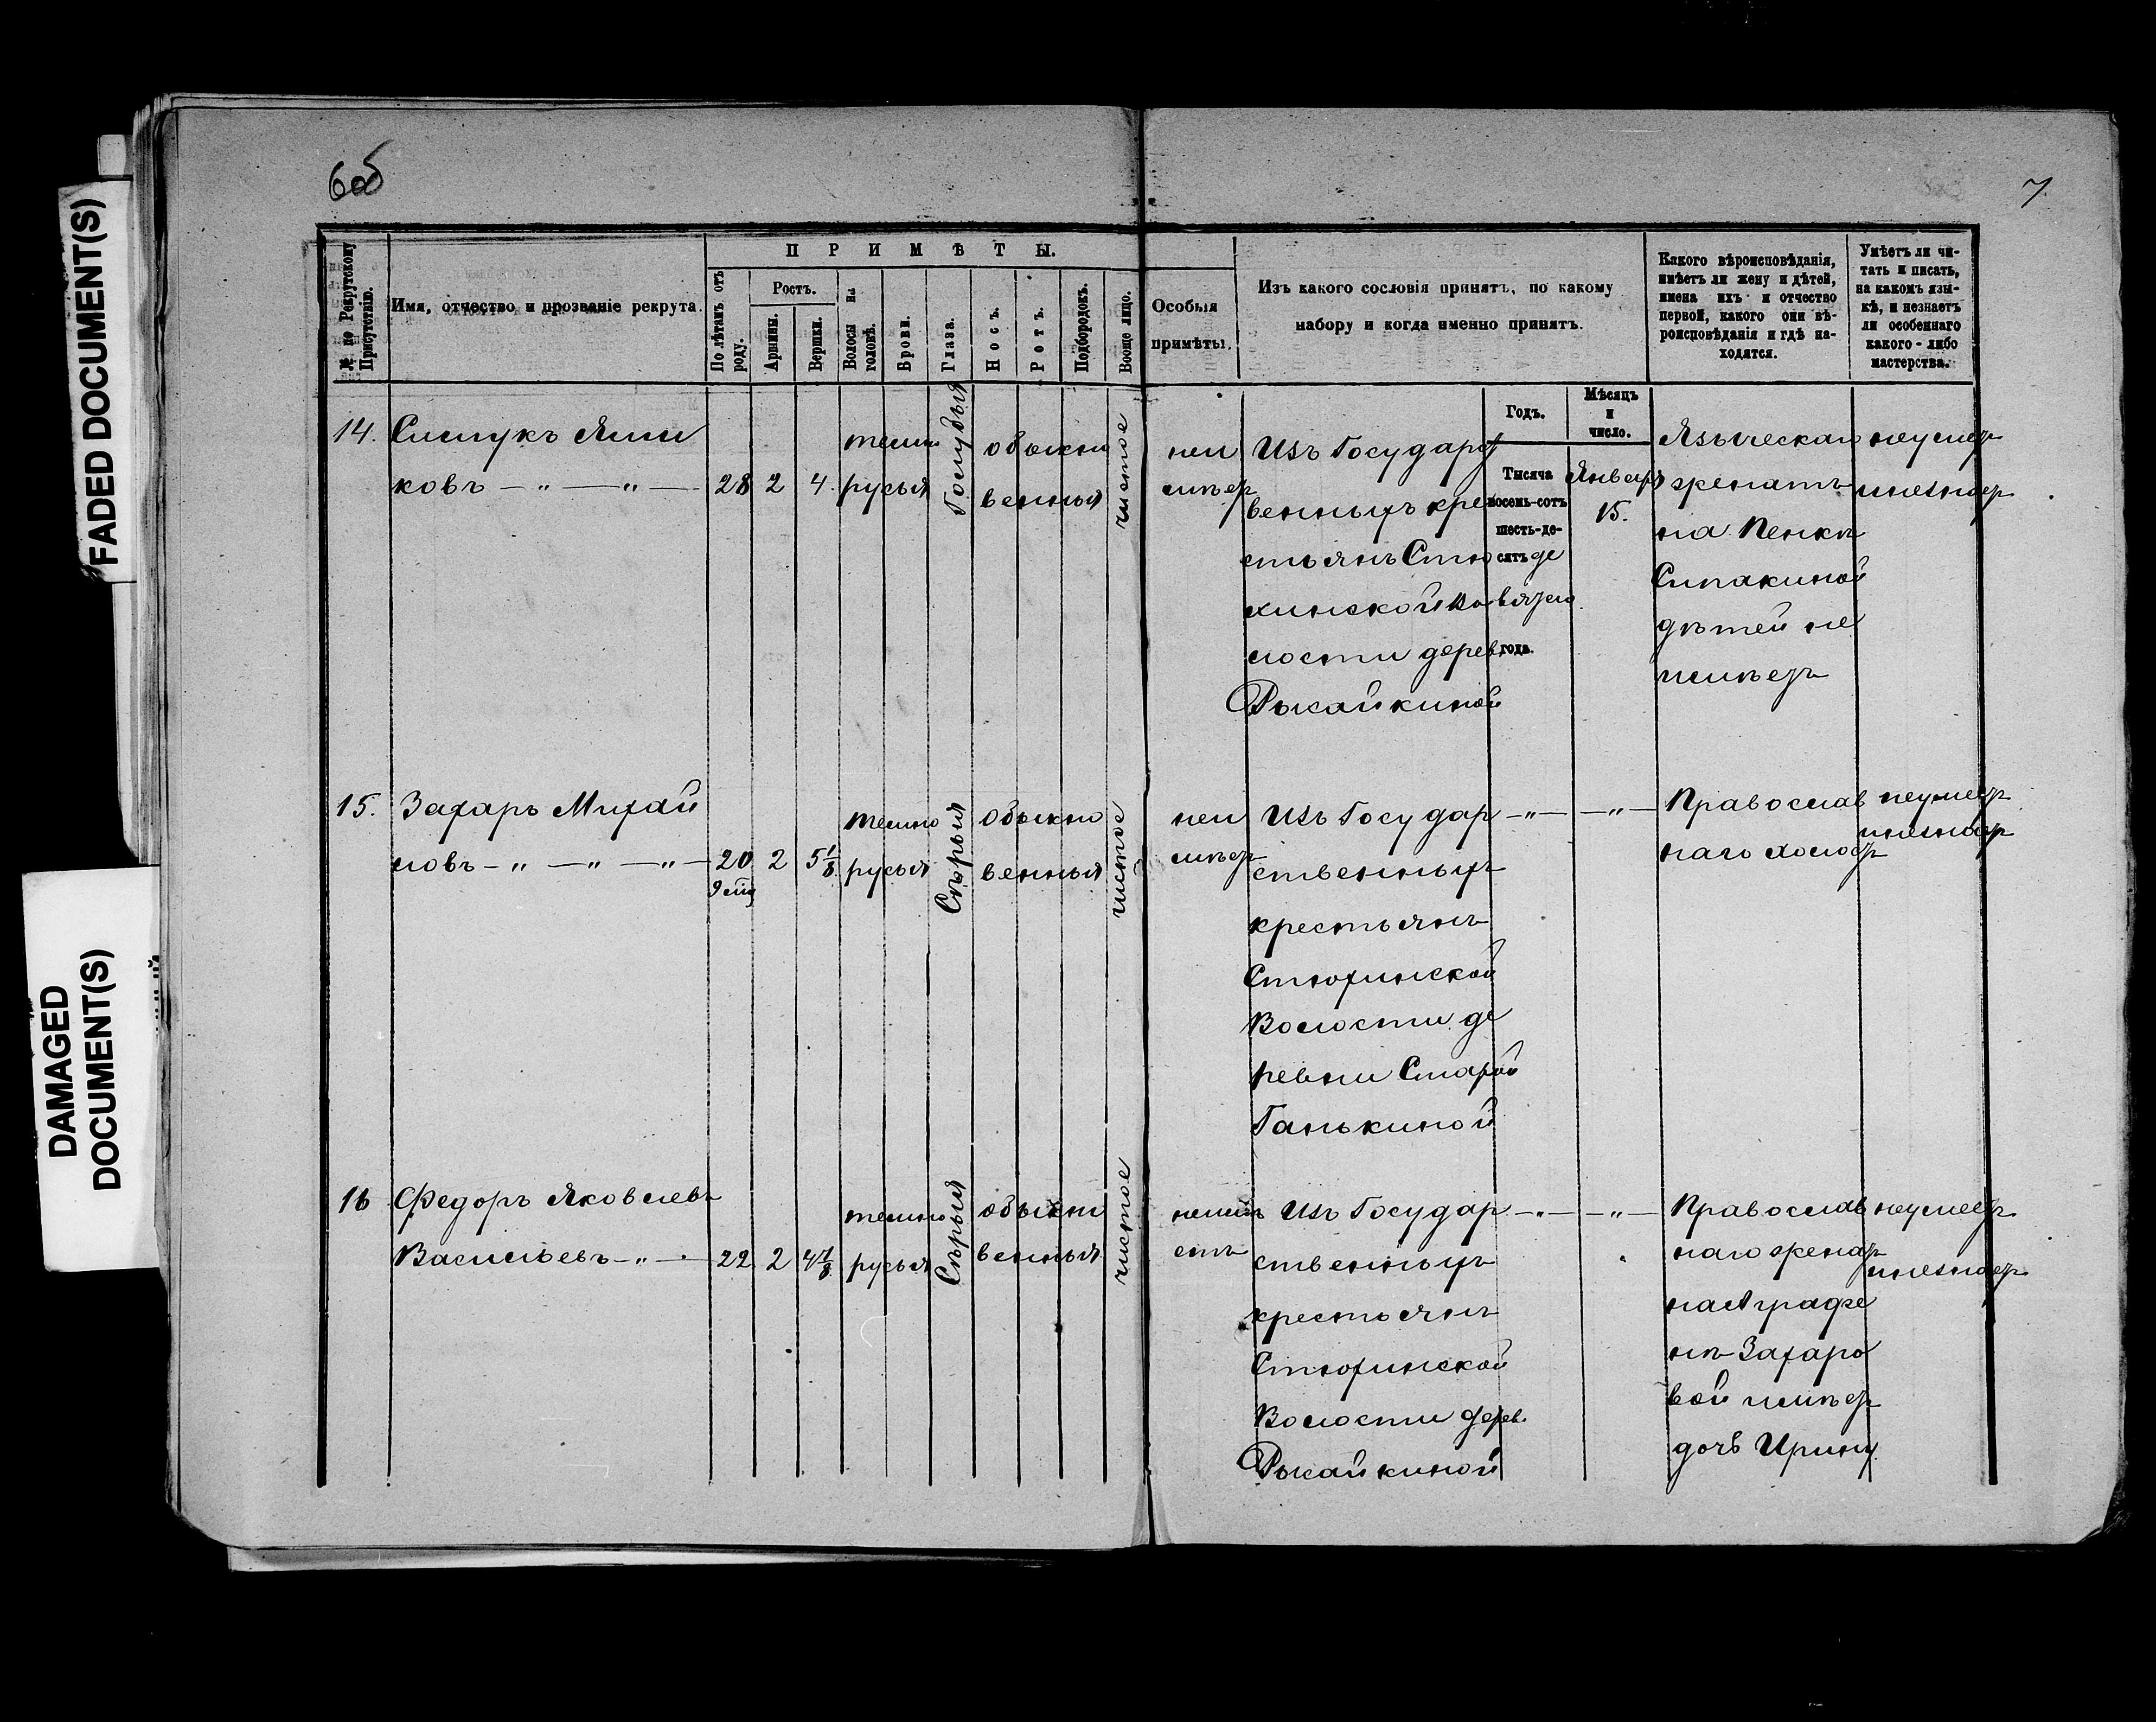 FADED DOCUMENT(S)
DAMAGED
DOCUMENT(S)
6об
7
№ по Рекрутскому Присутствію.
Имя, отчество и прозваніе рекрута.
ПРИМѢТЫ.
По лѣтамъ отъ роду.
Ростъ.
Аршины.
Вершки.
Волосы на головѣ.
Брови.
Глаза.
Носъ.
Ротъ.
Подбородокъ.
Вообще лицо.
Особыя
примѣты.
Изъ какого сословія принятъ, по какому
набору и когда именно принятъ.
Какого вѣроисповѣданія,
имѣетъ ли жену и дѣтей,
имена ихъ и отчество
первой, какого они вѣ-
роисповѣданія и гдѣ на-
ходятся.
Умѣетъ ли чи-
тать и писать,
на какомъ язы-
кѣ, и незнаетъ
ли особеннаго
какого-либо
мастерства.
Годъ.
Мѣсяцъ
и
число.
14.
ковъ — „ — „ —
28 2 4.
темно
русыя
Голубыя
обыкно
венныя
чистое
неи
мѣетъ
Изъ Государст
венныхъ кре
стьянъ Стю
хинской Во
лости дерев.
Рысайкиной
Тысяча
восемь-сотъ
шесть-де-
сятъ де
вятаго
года.
Январь
15.
Языческаго
женатъ
на Пенкѣ
Сипакиной
дѣтей не
имѣетъ
неумеетъ
инезнаетъ
15.
Захаръ Михай
ловъ — „ — „ — „ —
20 2 5 1/8
9 мц
темно
русыя
Сѣрыя
обыкно
венныя
чистое
неи
мѣетъ
Изъ Государ
ственныхъ
крестьянъ
Стюхинской
Волости де
ревни Старой
Ганькиной
— „ — — „ —
Православ
наго холостъ
неумеетъ
инезнаетъ
16
Федоръ Яковлевъ
Васильевъ — „ —
22 2 4 7/8
темно
русыя
Сѣрыя
обыкно
венныя
чистое
Изъ Государ
ственныхъ
крестьянъ
Стюхинской
Волости дерев.
Рысайкиной
— „ — — „ —
Православ
наго женат
на Аграфе
нѣ Захаро
вой имѣет
дочь Ирину
неумеетъ
инезнаетъ